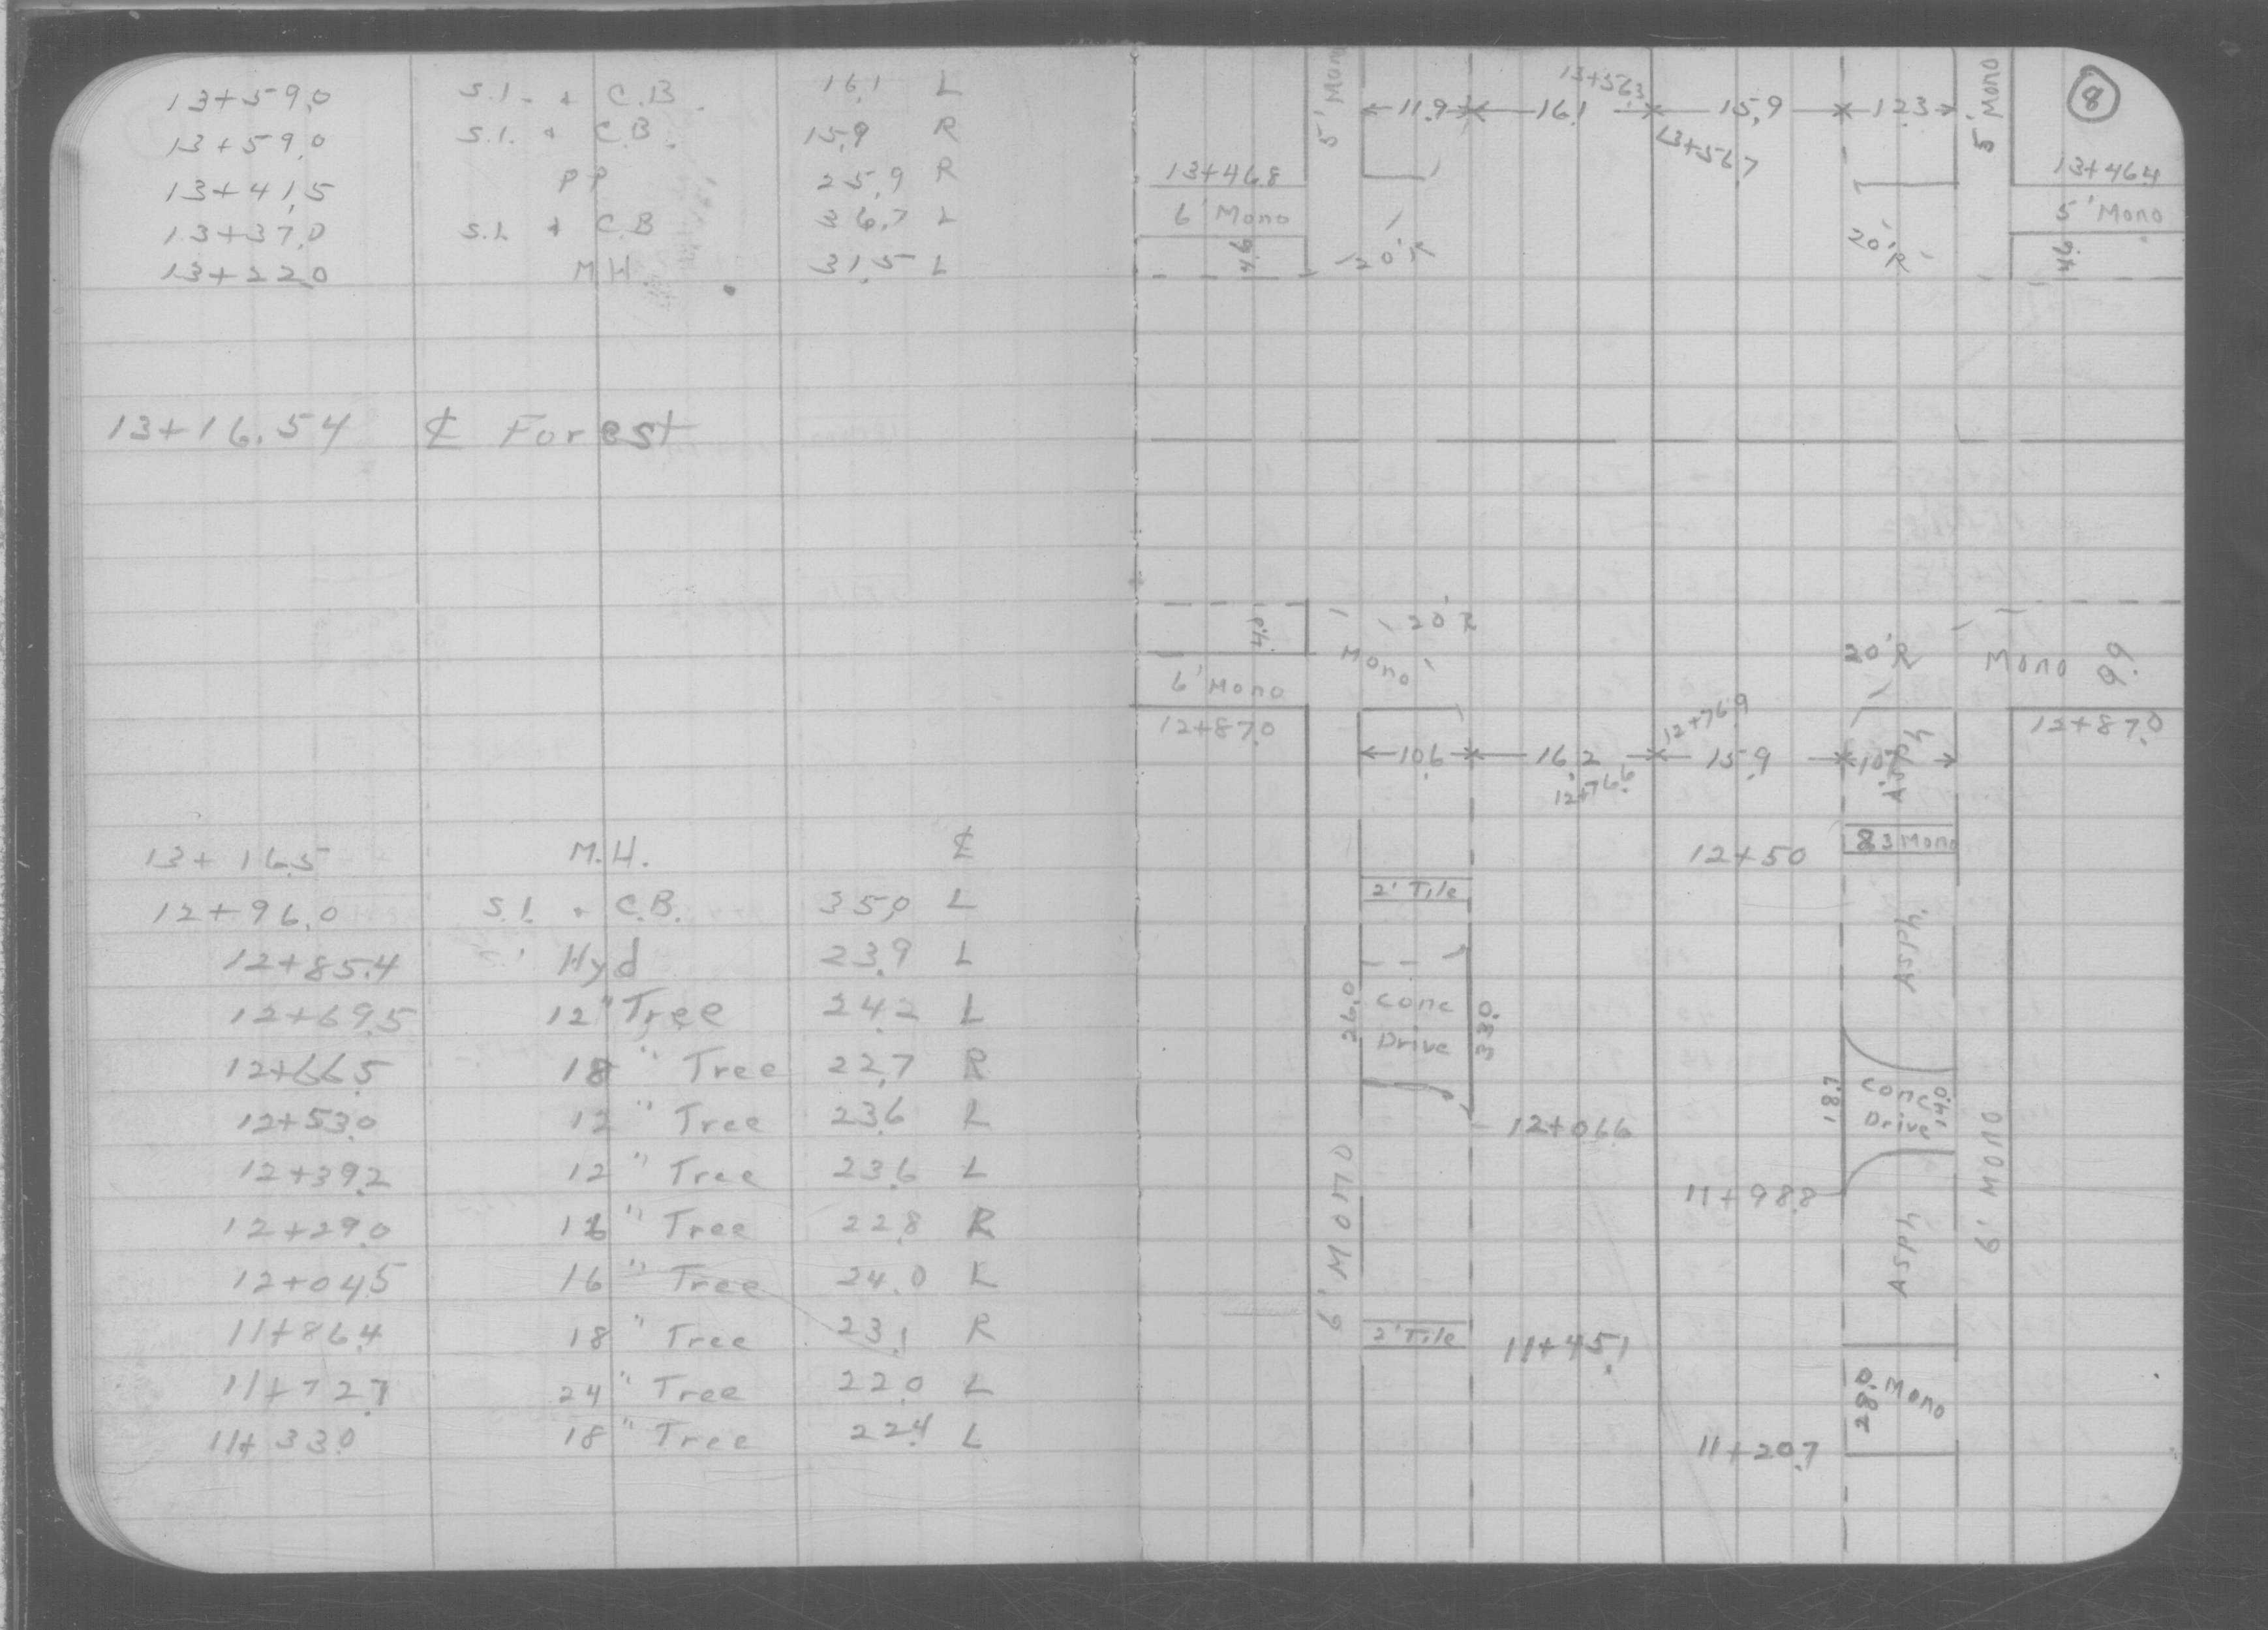 13+59.0 S.I. + C.B. 16.1 L
13+59.0 S.I. + C.B. 15.9 R
13+41.5 PP 25.9 R
13+37.0 S.I. + C.B 36.7 L
13+22.0 M.H. 31.5 L
13+16.54 ℄ Forest
13+16.5 M.H. ℄
12+96.0 S.I. + C.B. 35.0 L
12+85.4 Hyd 23.9 L
12+69.5 12" Tree 24.2 L
12+66.5 18" Tree 22.7 R
12+53.0 12" Tree 23.6 L
12+39.2 12" Tree 23.6 L
12+29.0 " Tree 22.8 R
12+04.5 16" Tree 24.0 L
11+86.4 18" Tree 23.1 R
11+72.7 24" Tree 22.0 L
11+33.0 18" Tree 22.4 L
8
5' Mono
13+56.3
11.9 16.1 15.9 12.3
13+56.7
5' Mono
13+46.8
13+46.4
6' Mono
5' Mono
4.6
20'R
20'R
4.6
4.9
20'R
Mono
20'R
Mono 9.9
6' Mono
12+87.0
12+76.9
12+87.0
10.6 16.2 15.9
12+76.6
Asph
12+50
8.3 Mono
2' Tile
Asph.
26.0
Conc
Drive
33.0
18.7
Conc
Drive
14.0
12+06.6
11+98.8
6' Mono
Asph
6' Mono
2' Tile
11+45.1
28.0 Mono
11+20.7